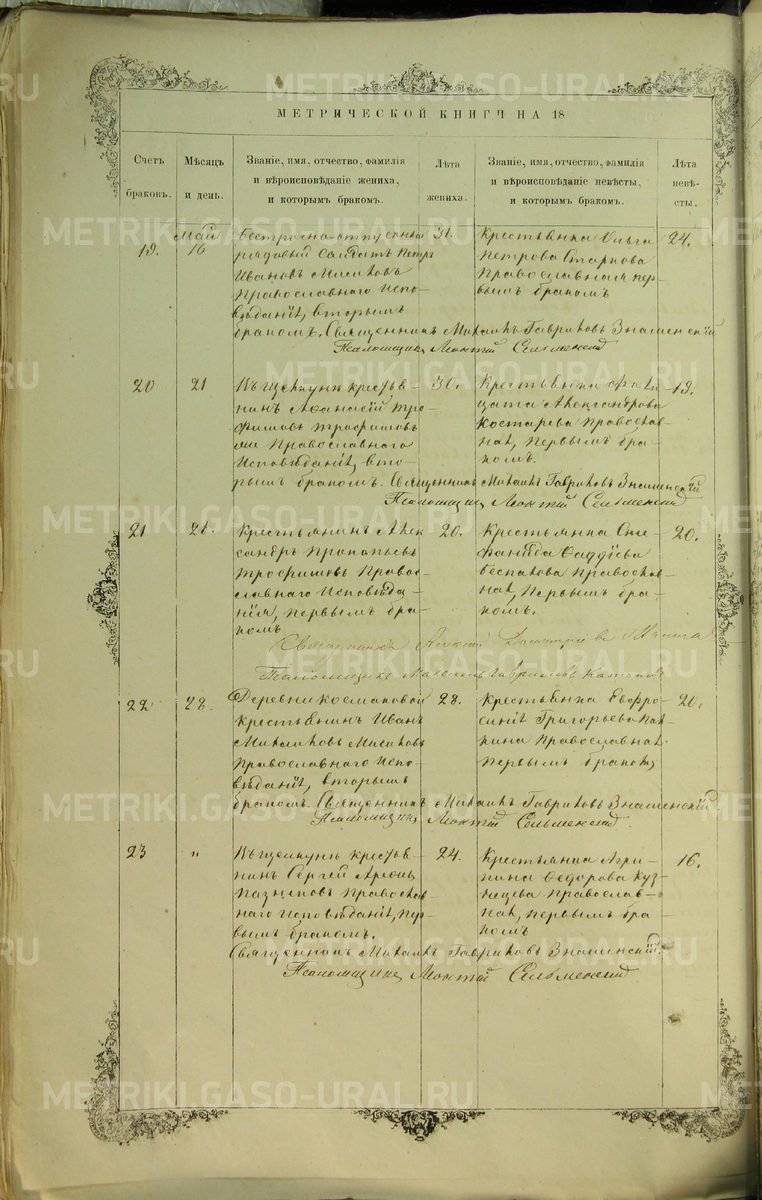 МЕТРИЧЕСКОЙ КНИГИ НА 18
Счетъ браковъ.
Мѣсяцъ и день.
Званіе, имя, отчество, фамилія и вѣроисповѣданіе жениха, и которымъ бракомъ.
Лѣта жениха.
Званіе, имя, отчество, фамилія и вѣроисповѣданіе невѣсты, и которымъ бракомъ.
Лѣта невѣсты.
19.
Май
16
рядовый Солдатъ Петръ
Ивановъ Мисиковъ
Православнаго Испо-
вѣданія, вторымъ
бракомъ.
31.
Крестьянка Ольга
Петрова
Православная пер-
вымъ бракомъ
24.
Священникъ Михаилъ Гавриловъ Знаменскій
Псаломщикъ Леонтій
20
21
крестья-
нинъ Афанасій Тро-
фимовъ Трофимовъ
Православнаго
Исповѣданія, вто-
рымъ бракомъ.
30.
Крестьянка
Александрова
Костарева Православ-
ная, первымъ бра-
комъ.
19.
Священникъ Михаилъ Гавриловъ Знаменскій
Псаломщикъ Леонтій
21
21.
Крестьянинъ Алек-
сандръ Прокопьевъ
Трофимовъ Право-
славнаго Исповѣда-
нія, первымъ бра-
комъ
20.
Крестьянка Сте-
фанида Фаддѣева
Беспалова Православ-
ная, Первымъ бра-
комъ.
20.
Псаломщикъ
22
28.
Деревни Космаковой
крестьянинъ Иванъ
Михаиловъ Мисиковъ
Православнаго Испо-
вѣданія, вторымъ
бракомъ.
28.
Крестьянка Евфро-
синія Григорьева
Православная
первымъ бракомъ
20.
Священникъ Михаилъ Гавриловъ Знаменскій
Псаломщикъ Леонтій
23
"
крестья-
нинъ Сергей
Православ-
наго Исповѣданія, пер-
вымъ бракомъ.
24.
Крестьянка Агри-
пина Федорова Куз-
нецова Православ-
ная, первымъ бра-
комъ
16.
Священникъ Михаилъ Гавриловъ Знаменскій.
Псаломщикъ Леонтій
METRIKI.GASO-URAL.RU